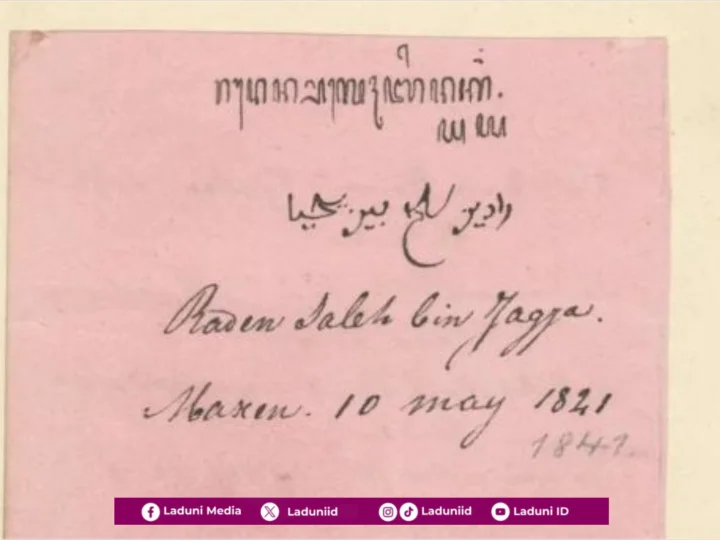 رادين صالح بين يحيا
Raden Saleh bin Jagja.
Maxen. 10 may 1821
1841.
Laduni Media Laduniid Laduniid Laduni ID